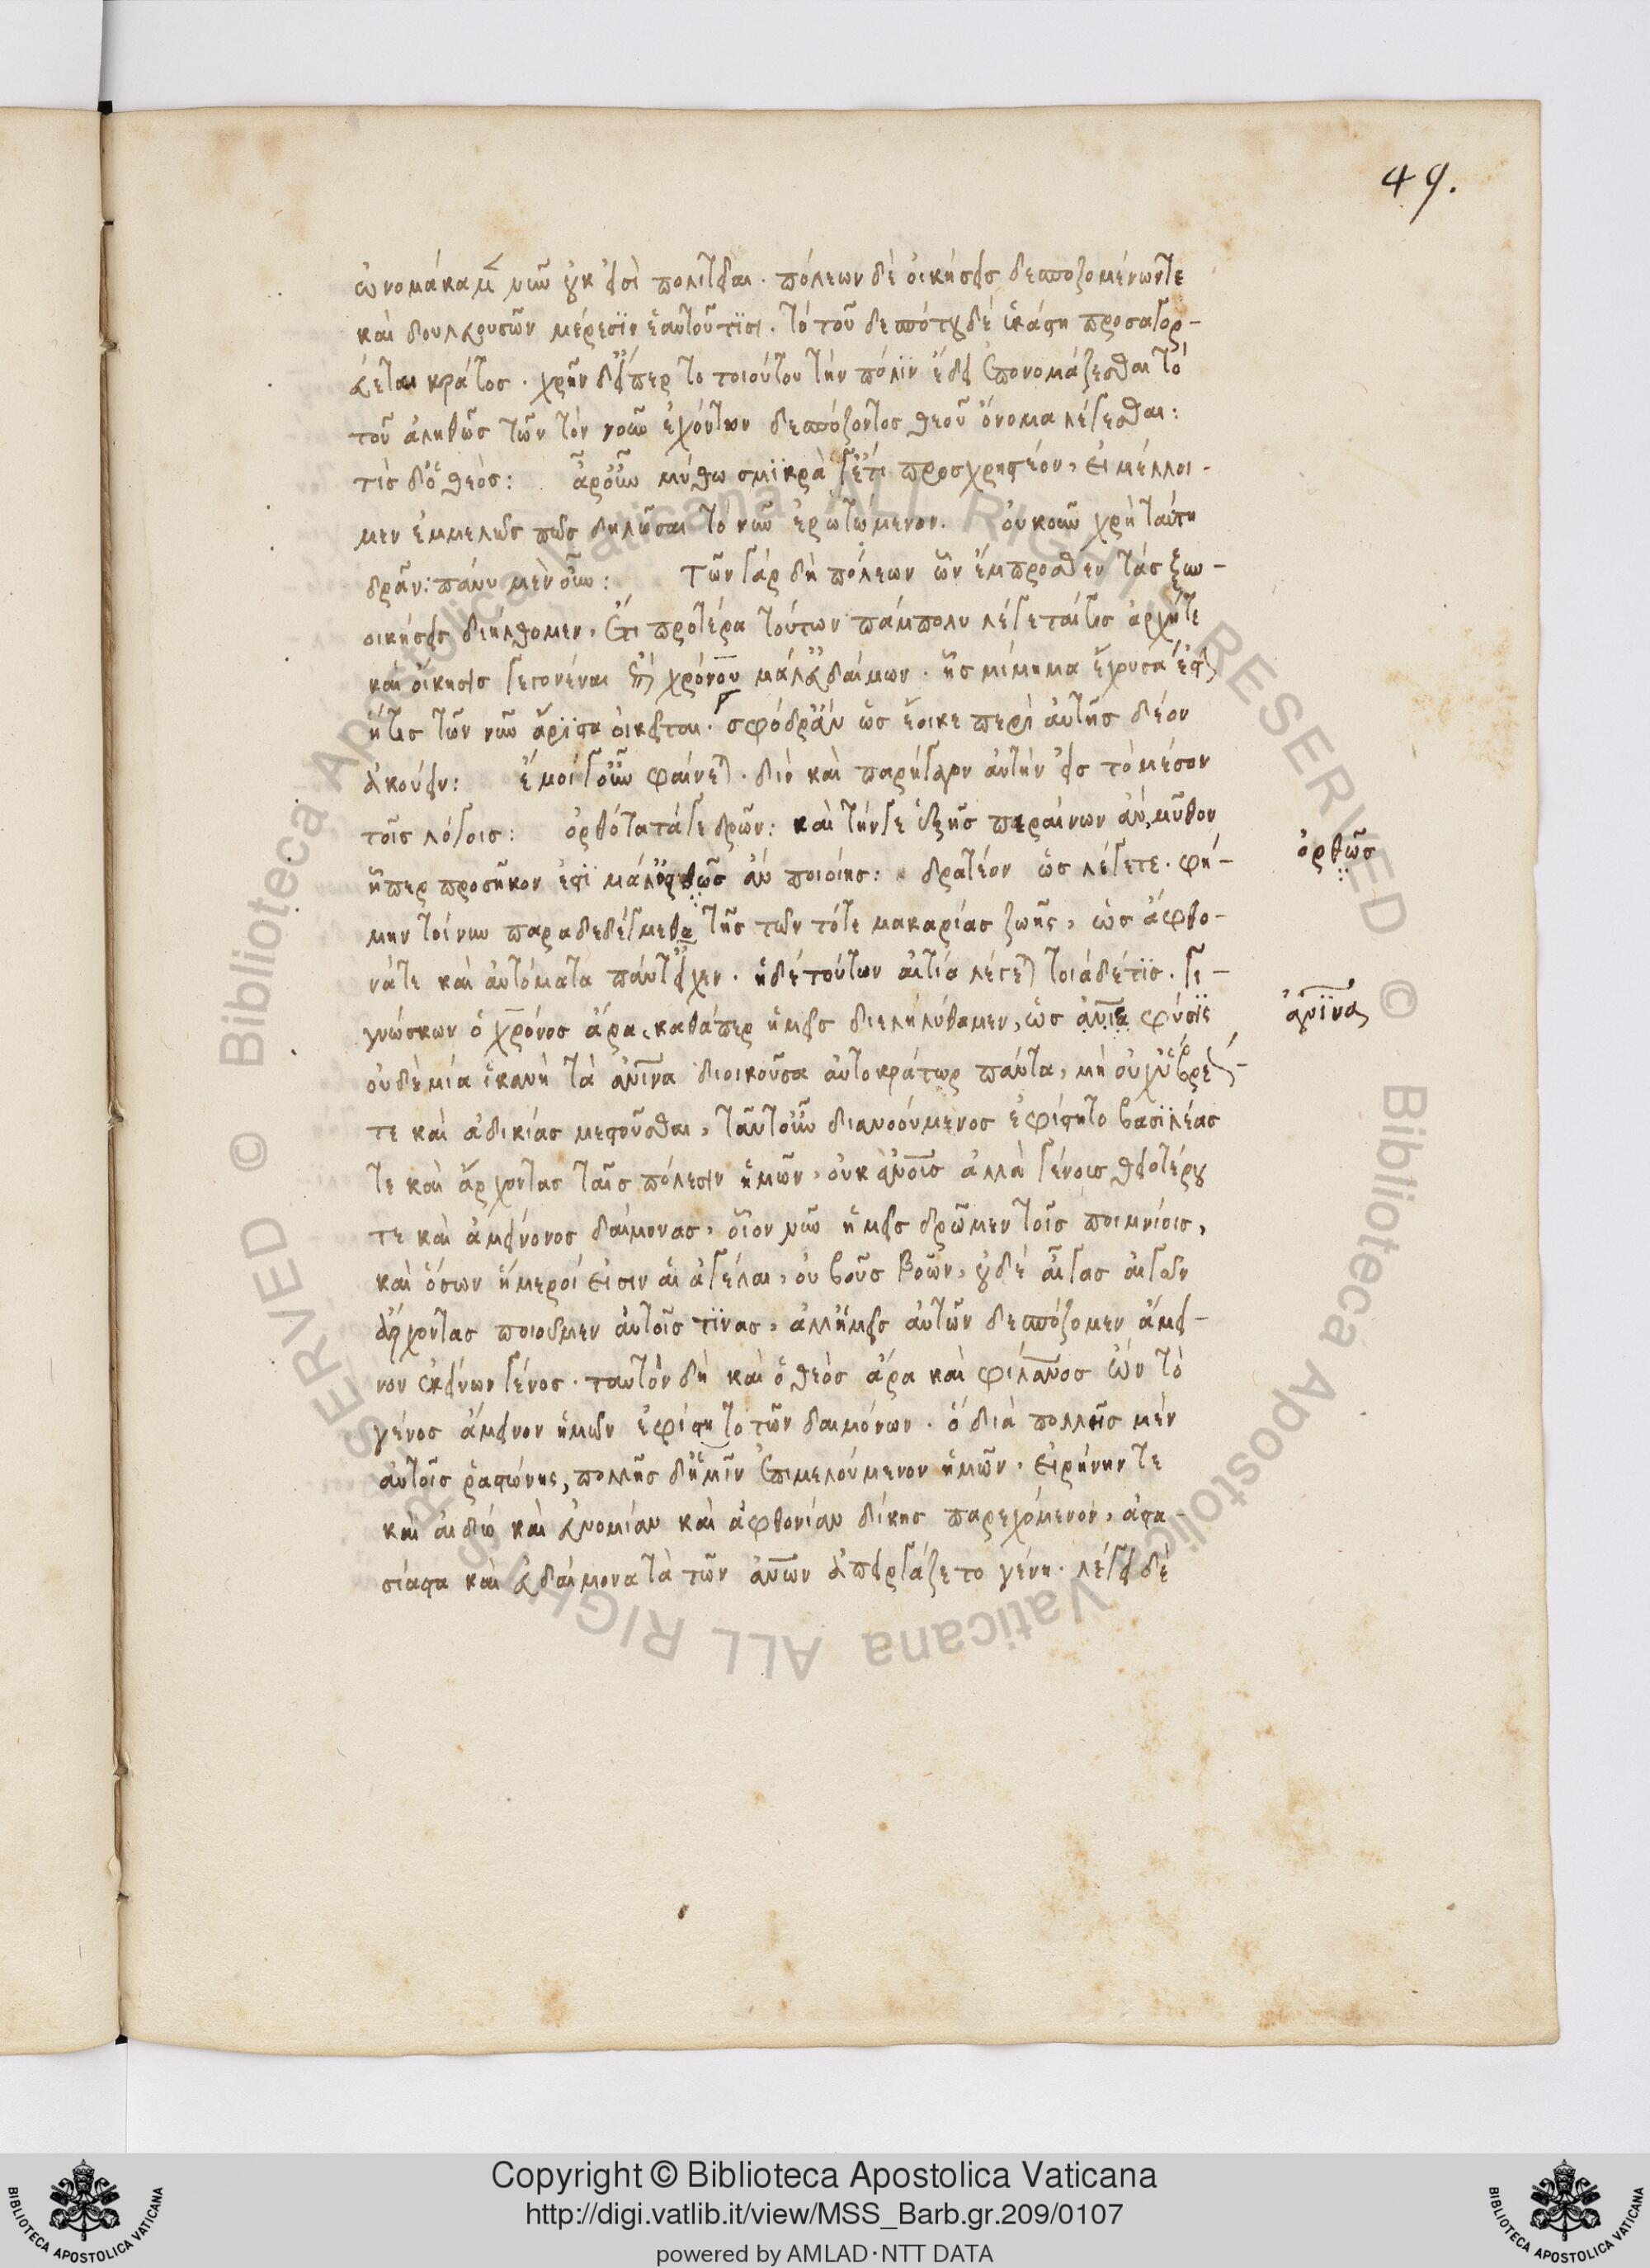 49.
ὠνομάκαμεν νῦν οὐκ εἰσὶ πολιτεῖαι. πόλεων δὲ οἰκήσεις δεσποζομένων τε
καὶ δουλευουσῶν μέρεσιν ἑαυτοῦ τισι. τὸ τοῦ δεσπότου δὲ ἑκάστη προσαγορ-
εύεται κράτος. χρῆν δ' εἴπερ το τοιούτου τὴν πόλιν ἔδει ἐπονομάζεσθαι τὸ
τοῦ ἀληθῶς τῶν τὸν νοῦν ἐχόντων δεσπόζοντος θεοῦ ὄνομα λέγεσθαι:
τίς δ' ὁ θεὸς: ἆρ' οὖν μύθω σμικρὰ γ' ἔτι προσχρηστέον, εἰ μέλλοι-
μεν ἐμμελῶς πως δηλῶσαι τὸ νῦν ἐρωτώμενον. οὐκοῦν χρὴ ταύτη
δρᾶν: πάνυ μὲν οὖν: τῶν γάρ δὴ πόλεων ὧν ἔμπροσθεν τὰς ξυν-
οικήσεις διήλθομεν, ἔτι προτέρα τούτων πάμπολυ λέγεταί τις ἀρχή τε
καὶ οἴκησις γεγονέναι ἐπὶ χρόνου μάλ' εὐδαίμων. ἧς μίμημα ἔχουσά ἐστιν
ἥτις τῶν νῦν ἄριστα οἰκεῖται. σφόδρ' ἂν ὡς ἔοικε περὶ αὐτῆς δέον
ἀκούειν: ἐμοὶ γοῦν φαίνεται. διὸ καὶ παρήγαγον αὐτὴν εἰς τὸ μέσον
τοῖς λόγοις: ὀρθότατά γε δρῶν: καὶ τήν γε ἑξῆς περαίνων ἂν μῦθον
ἥπερ προσῆκον ἐστὶ μάλ' ὀρθῶς ἂν ποιοίης: δρατέον ὡς λέγετε. φή-
ὀρθῶς
μην τοίνυν παραδεδέγμεθα τῆς τῶν τότε μακαρίας ζωῆς, ὡς ἄφθο-
νά τε καὶ αὐτόματα πάντ' εἶχεν. ἡ δὲ τούτων αἰτία λέγεται τοιάδέ τις. γι-
γνώσκων ὁ χρόνος ἄρα, καθάπερ ἡμεῖς διεληλύθαμεν, ὡς ἀνία φύσις
ἀνῖνα
οὐδὲ μία ἱκανὴ τὰ ἀνῖνα διοικοῦσα αὐτοκράτωρ πάντα, μὴ οὐχ ὕβρεώς
τε καὶ ἀδικίας μεστοῦσθαι, ταῦτ' οὖν διανοούμενος ἐφίστητο βασιλέας
τε καὶ ἄρχοντας ταῖς πόλεσιν ἡμῶν, οὐκ ἀνοῖς ἀλλὰ γένοις θειοτέρου
τε καὶ ἀμείνονος δαίμονας, οἷον νῦν ἡμεῖς δρῶμεν τοῖς ποιμνίοις,
καὶ ὅσων ἥμεροί εἰσιν αἱ ἀγέλαι, οὐ βοῦς βοῶν, οὐδὲ αἶγας αἰγῶν
ἄρχοντας ποιοῦμεν αὐτοῖς τινας, ἀλλ' ἡμεῖς αὐτῶν δεσπόζομεν ἄμει-
νον ἐκείνων γένος. ταὐτὸν δὴ καὶ ὁ θεὸς ἄρα καὶ φιλανος ὢν τὸ
γένος ἄμεινον ἡμῶν ἐφίστη το τῶν δαιμόνων. ὃ διὰ πολλῆς μὲν
αὐτοῖς ῥαστώνης, πολλῆς δ' ἡμῖν ἐπιμελούμενον ἡμῶν, εἰρήνην τε
καὶ αἰδώ καὶ εὐνομίαν καὶ ἀφθονίαν δίκης παρεχόμενον, ἀστα-
σίαστα καὶ εὐδαίμονα τὰ τῶν ἀνων ἀπειργάζετο γένη. λέγει δὲ
Copyright © Biblioteca Apostolica Vaticana
http://digi.vatlib.it/view/MSS_Barb.gr.209/0107
powered by AMLAD·NTT DATA
BIBLIOTECA APOSTOLICA VATICANA
BIBLIOTECA APOSTOLICA VATICANA
© Biblioteca Apostolica Vaticana ALL RIGHTS RESERVED © Biblioteca Apostolica Vaticana ALL RIGHTS RESERVED